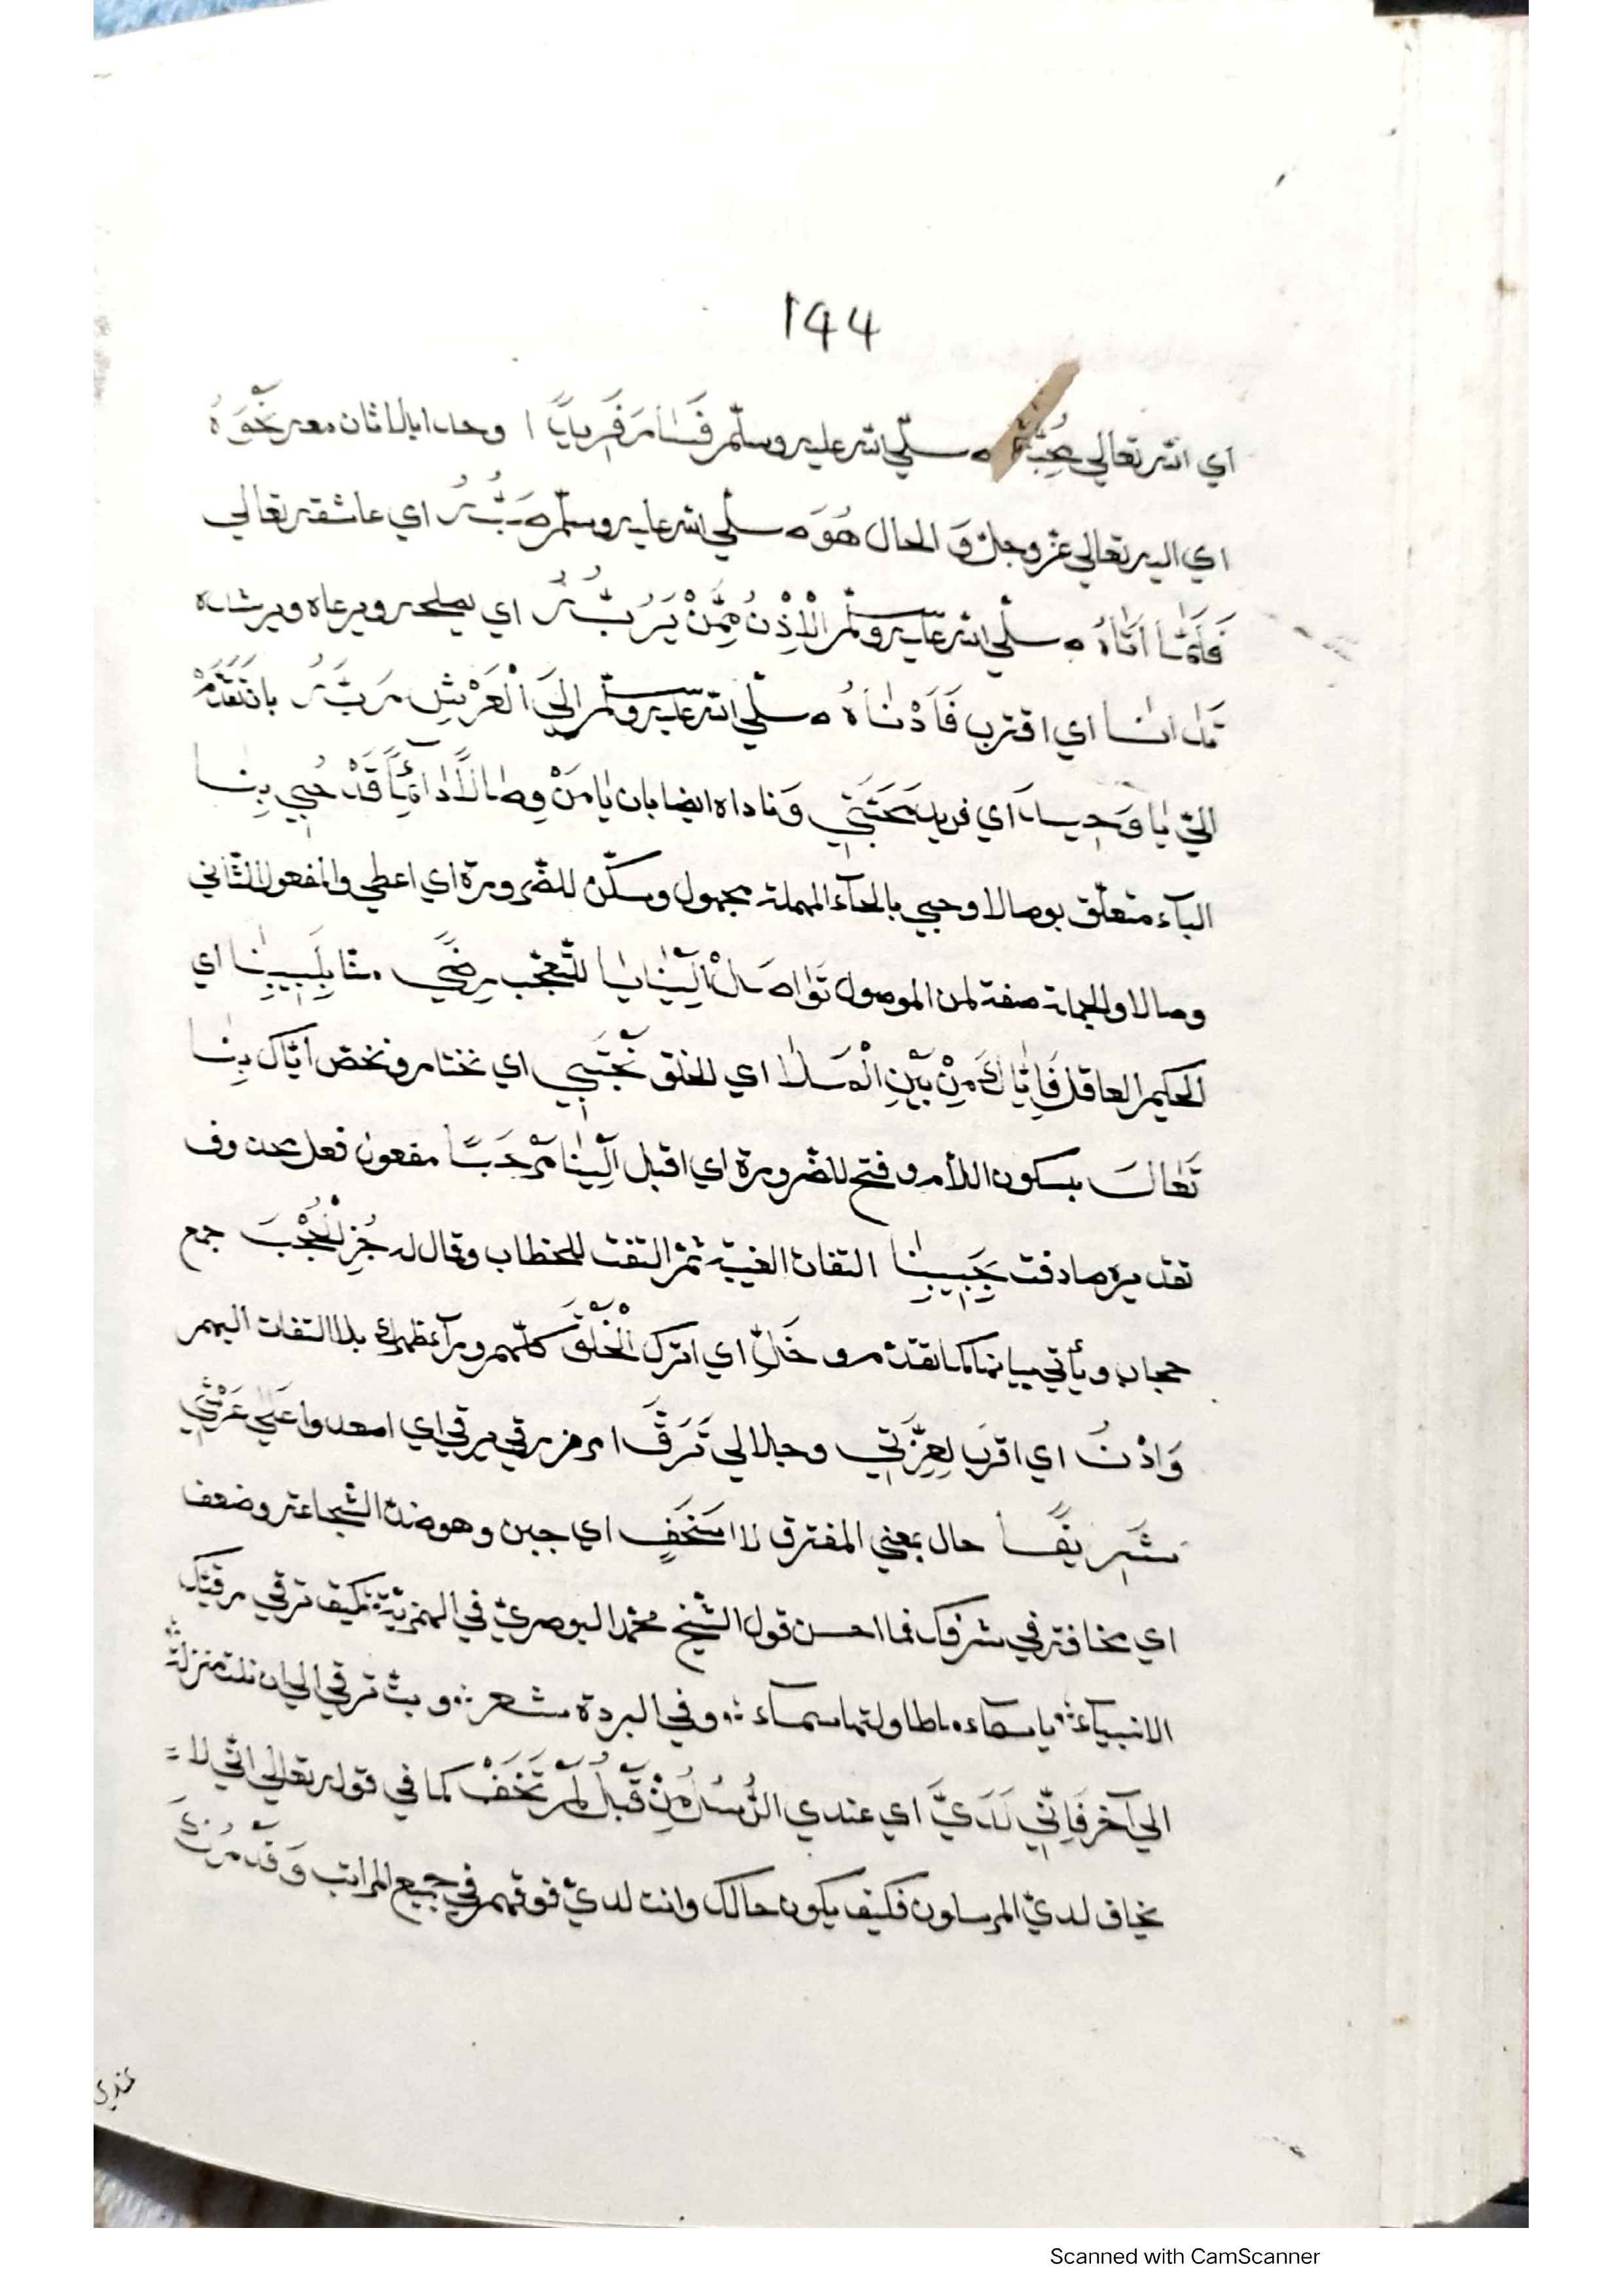 144
اي الله تعالي صلّي الله عليه وسلّم فَسَارَ فَرِيدًا وحدا بلا ثان معه نَحْوَهُ
اي اليه تعالي عزّ وجلّ وَ الحال هُوَ صلّي الله عليه وسلّم صَبُّهُ اي عاشقه تعالي
فَلَمَّا اَتَاهُ صلّي الله عليه وسلّم الْاِذْنُ مِمَّنْ يَرُبُّهُ اي يصلحه ويرعاه ويرشده
اي اقترب فَاَدْنَاهُ صلّي الله عليه وسلّم اِلَي الْعَرْشِ رَبُّهُ بان تَقَدَّمْ
اليّ يَا وَحِيدَ اي فريد مَحَبَّتِي وَناداه ايضا بان يَا مَنْ وِصَالًا دَائِمًا قَدْ حُبِي بِنَا
الباء متعلّق بوصالا وحبي بالحاء المهملة مجهول وسكّن للضّرورة اي اعطي والمفعول الثّاني
وصالا والجملة صفة لمن الموصول تَوَاصَلْ اِلَيْنَا يا للتّعجّب رِضًي منّا بِلَبِيبِنَا اي
الحكيم العاقل فَاِيَّاكَ مِنْ بَيْنِ الْمَلَا اي الخلق نَجْتَبِي اي نختار ونخصّ ايّاك بِنَا
تَعَالَ بسكون اللّام وفتح للضّرورة اي اقبل اِلَيْنَا مَرْحَبًا مفعول فعل محذوف
تقديره صادفت بِحَبِيبِنَا التفات الغيبة ثمّ التفت للخطاب وقال له جُزِ الْحُجْبَ جمع
حجاب ويأتي بيانها كما تقدّم وخَلِّ اي اترك الْخَلْقَ كلّهم ورآء ظهرك بلا التفات اليهم
وَادْنُ اي اقرب لِعِزَّتِي وجلالي تَرَقَّ امر من رقي يرقي اي اصعد واعل عَلَي عَرْشِي
شَرِيفًا حال بمعني المفترق لا اي جبن وهو ضدّ الشّجاعة وضعف
اي مخافة في شرفك فما احسن قول الشّيخ محمّد البوصريّ في الهمزيّة كيف ترقي رقيّك
الانبياء يا سماء ما طاولتها سماء وفي البردة شعر وبتّ ترقي الي ان نلت منزلة
الي آخر فَاِنِّي لَدَيَّ اي عندي الرُّسُلُ مِنْ قَبْلُ لَمْ تَخَفْ كما في قوله تعالي انّي لا
يخاف لديّ المرسلون فكيف يكون حالك وانت لديّ فوقهم في جميع المراتب وَقَدْ
عندي
Scanned with CamScanner